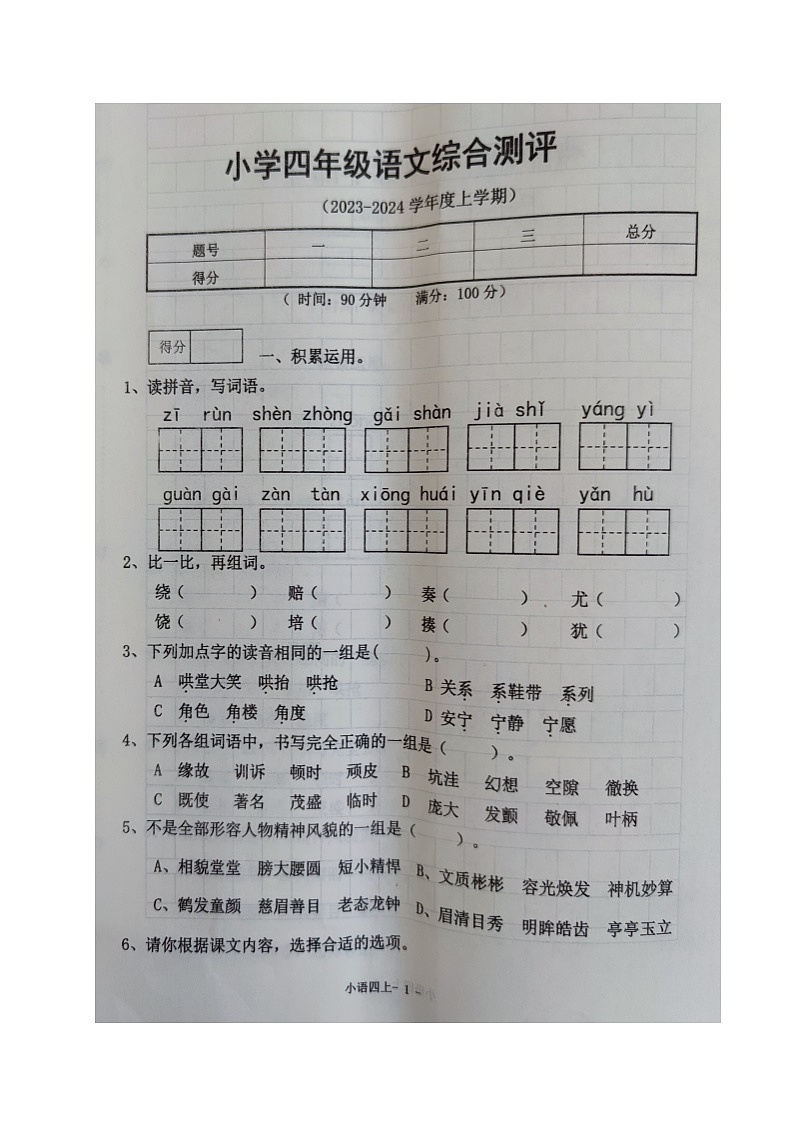 小学四年级语文综合测评
（2023-2024学年度上学期）
题号 一 二 三 总分
得分
（ 时间：90分钟 满分：100分）
得分
一、积累运用。
1、读拼音，写词语。
zī rùn shèn zhòng gǎi shàn jià shǐ yáng yì
guàn gài zàn tàn xiōng huái yīn qiè yǎn hù
2、比一比，再组词。
绕（ ） 赔（ ） 奏（ ） 尤（ ）
饶（ ） 培（ ） 揍（ ） 犹（ ）
3、下列加点字的读音相同的一组是( )。
A 哄堂大笑 哄抬 哄抢 B 关系 系鞋带 系列
C 角色 角楼 角度 D 安宁 宁静 宁愿
4、下列各组词语中，书写完全正确的一组是（ ）。
A 缘故 训诉 顿时 顽皮 B 坑洼 幻想 空隙 徹换
C 既使 著名 茂盛 临时 D 庞大 发颤 敬佩 叶柄
5、不是全部形容人物精神风貌的一组是（ ）。
A、相貌堂堂 膀大腰圆 短小精悍 B、文质彬彬 容光焕发 神机妙算
C、鹤发童颜 慈眉善目 老态龙钟 D、眉清目秀 明眸皓齿 亭亭玉立
6、请你根据课文内容，选择合适的选项。
小语四上- 1 -